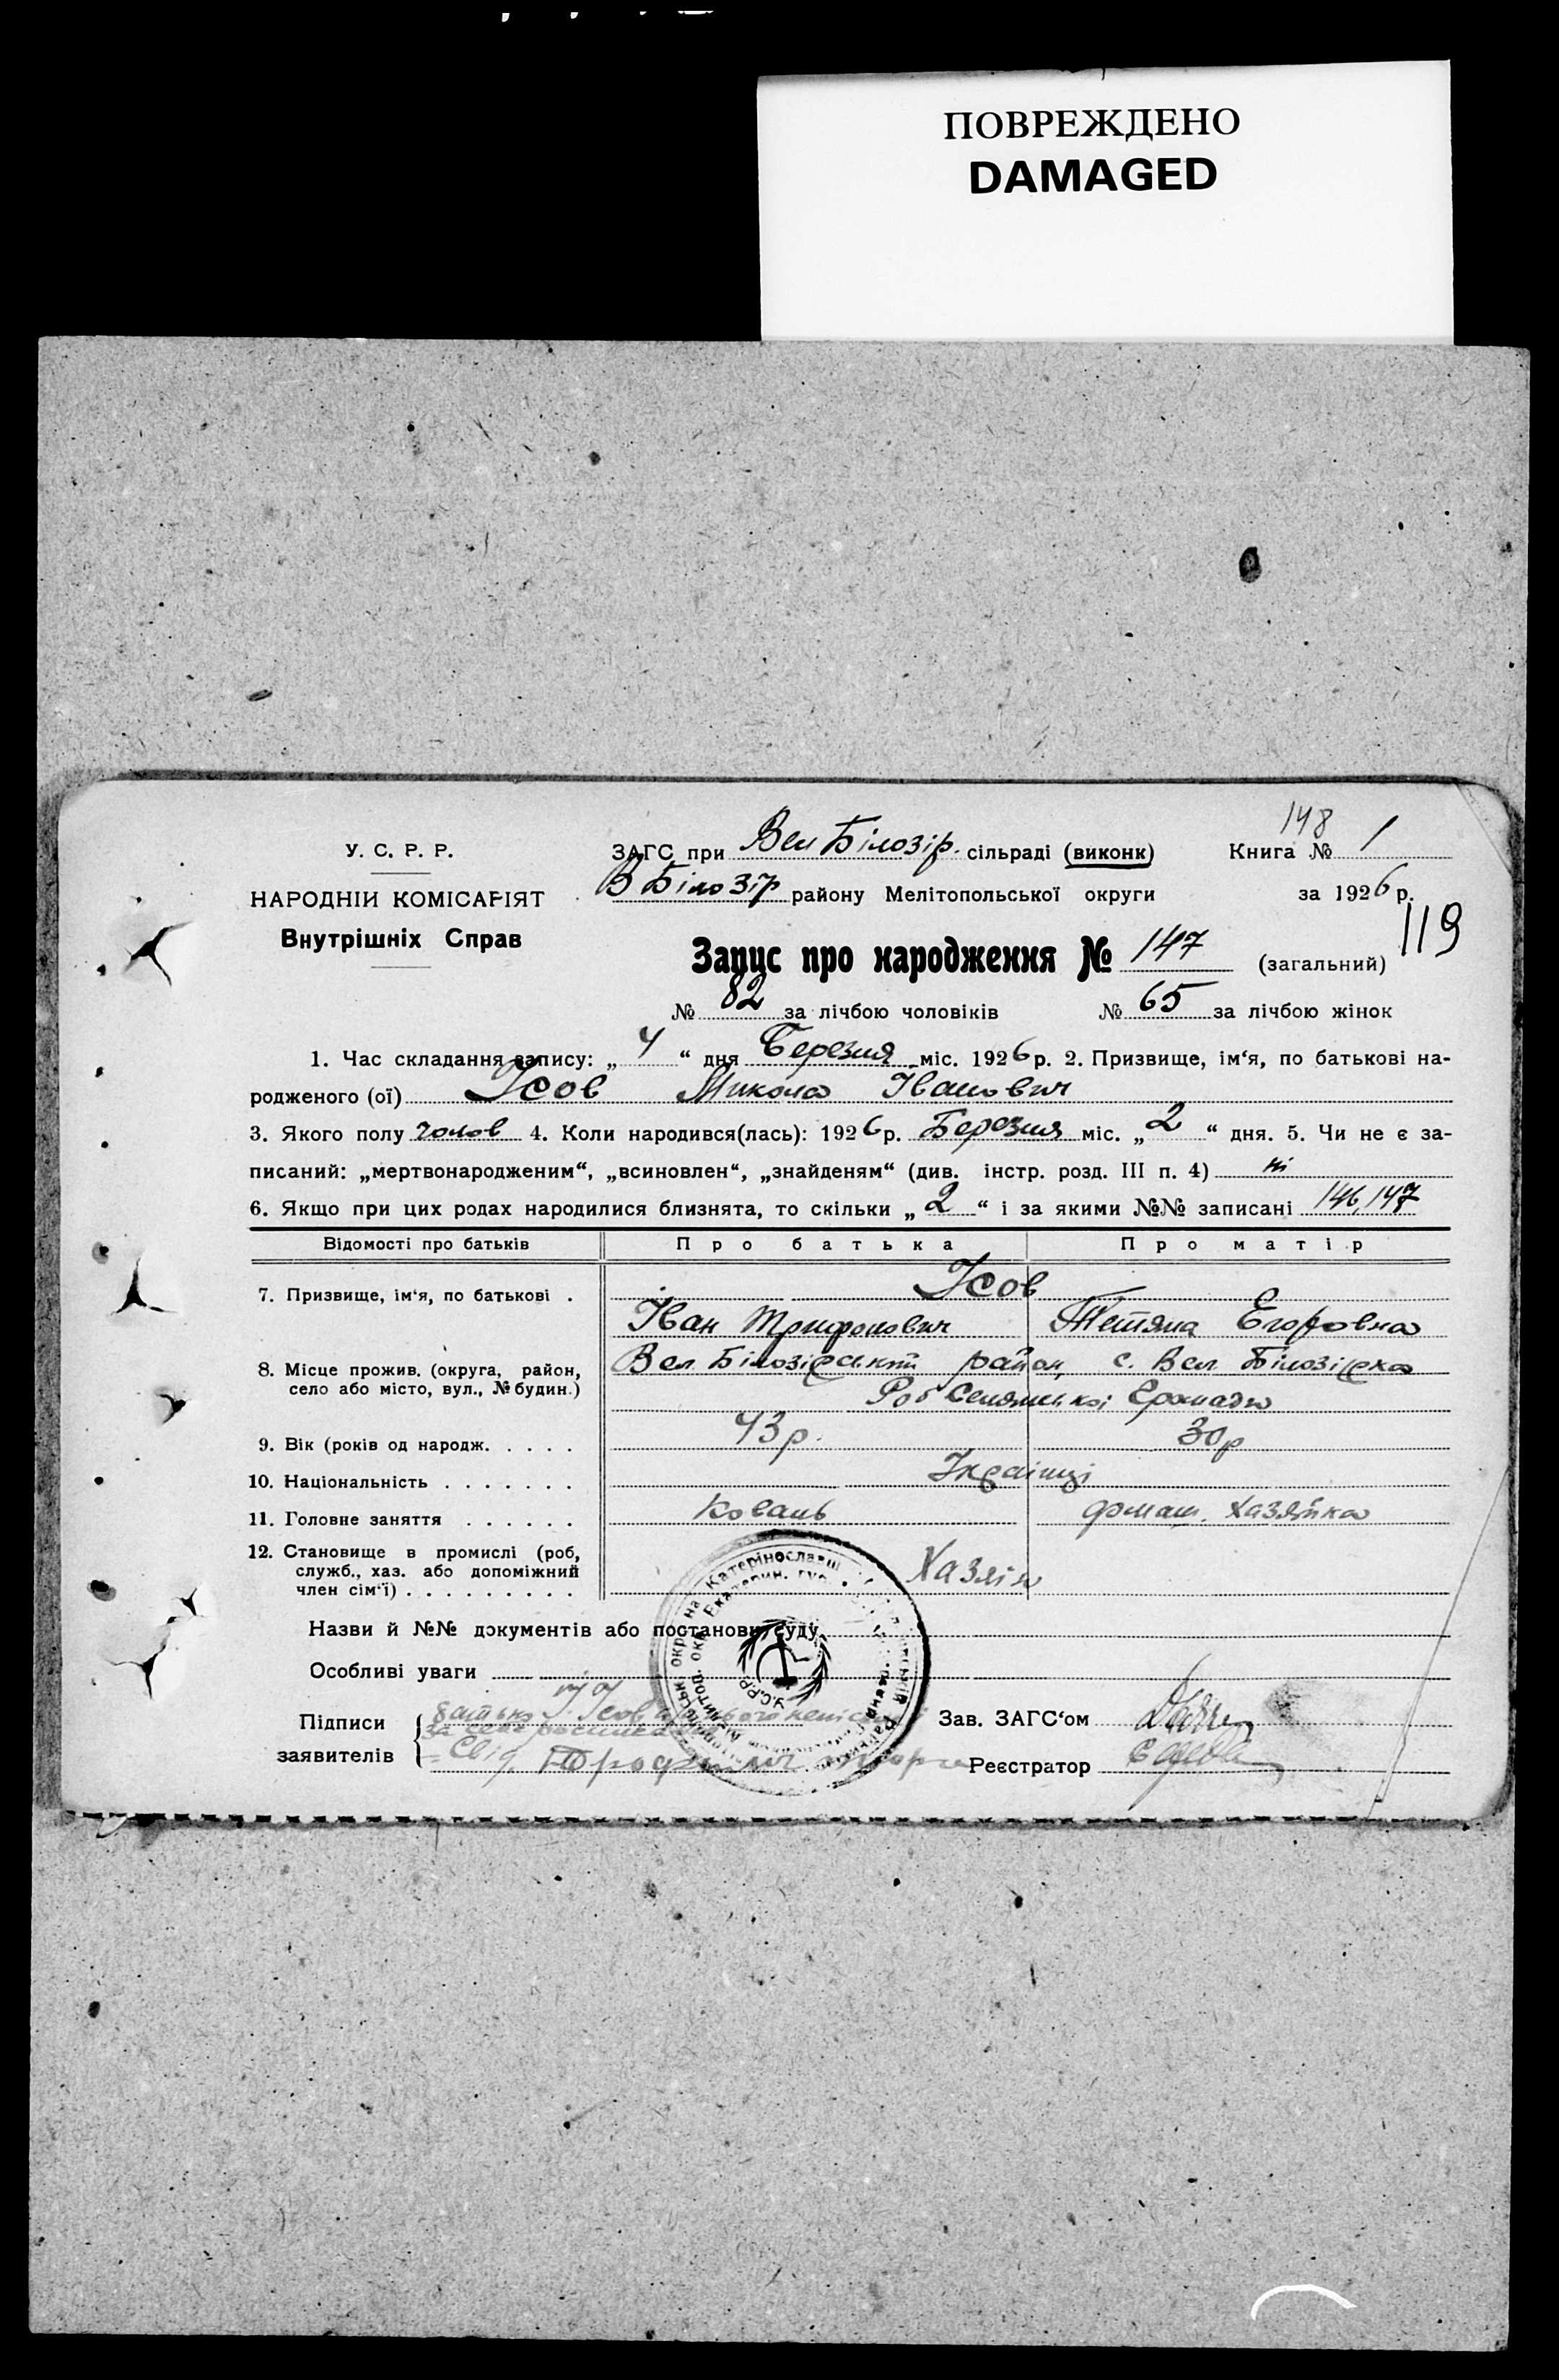 ПОВРЕЖДЕНО
DAMAGED
148
У. С. Р. Р.
ЗАГС при Вел Білозір. сільраді (виконк) Книга № 1
НАРОДНІЙ КОМІСАРІЯТ
В Білозір району Мелітопольської округи за 1926 р.
119
Внутрішніх Справ
Запис про народження № 147 (загальний)
№ 82 за лічбою чоловіків № 65 за лічбою жінок
1. Час складання запису: „ 4 “ дня Березня міс. 1926 р. 2. Призвище, ім‘я, по батькові на-
родженого (ої) Усов Микола Іванович
3. Якого полу чолов 4. Коли народився(лась): 1926 р. Березня міс. „ 2 “ дня. 5. Чи не є за-
писаний: „мертвонародженим“, „всиновлен“, „знайденям“ (див. інстр. розд. III п. 4) ні
6. Якщо при цих родах народилися близнята, то скільки „ 2 “ і за якими №№ записані 146, 147
Відомості про батьків Про батька Про матір
7. Призвище, ім‘я, по батькові . Усов
Іван Трифонович Тетяна Егоровна
8. Місце прожив. (округа, район, село або місто, вул., № будин.) Вел. Білозірський район, с. Вел Білозірка
Громада
9. Вік (років од народж. . . . . 43 р. 30 р
10. Національність . . . . . . . Українці
11. Головне заняття . . . . . . Коваль домаш. Хазяйка
12. Становище в промислі (роб,
служб., хаз. або допоміжний
член сім‘ї) . . . . . . . . . Хазяїн
Назви й №№ документів або постанови суду
Особливі уваги
Підписи
заявителів
батько Усов
Свід.
Зав. ЗАГС‘ом
Реєстратор
У.С.Р.Р.